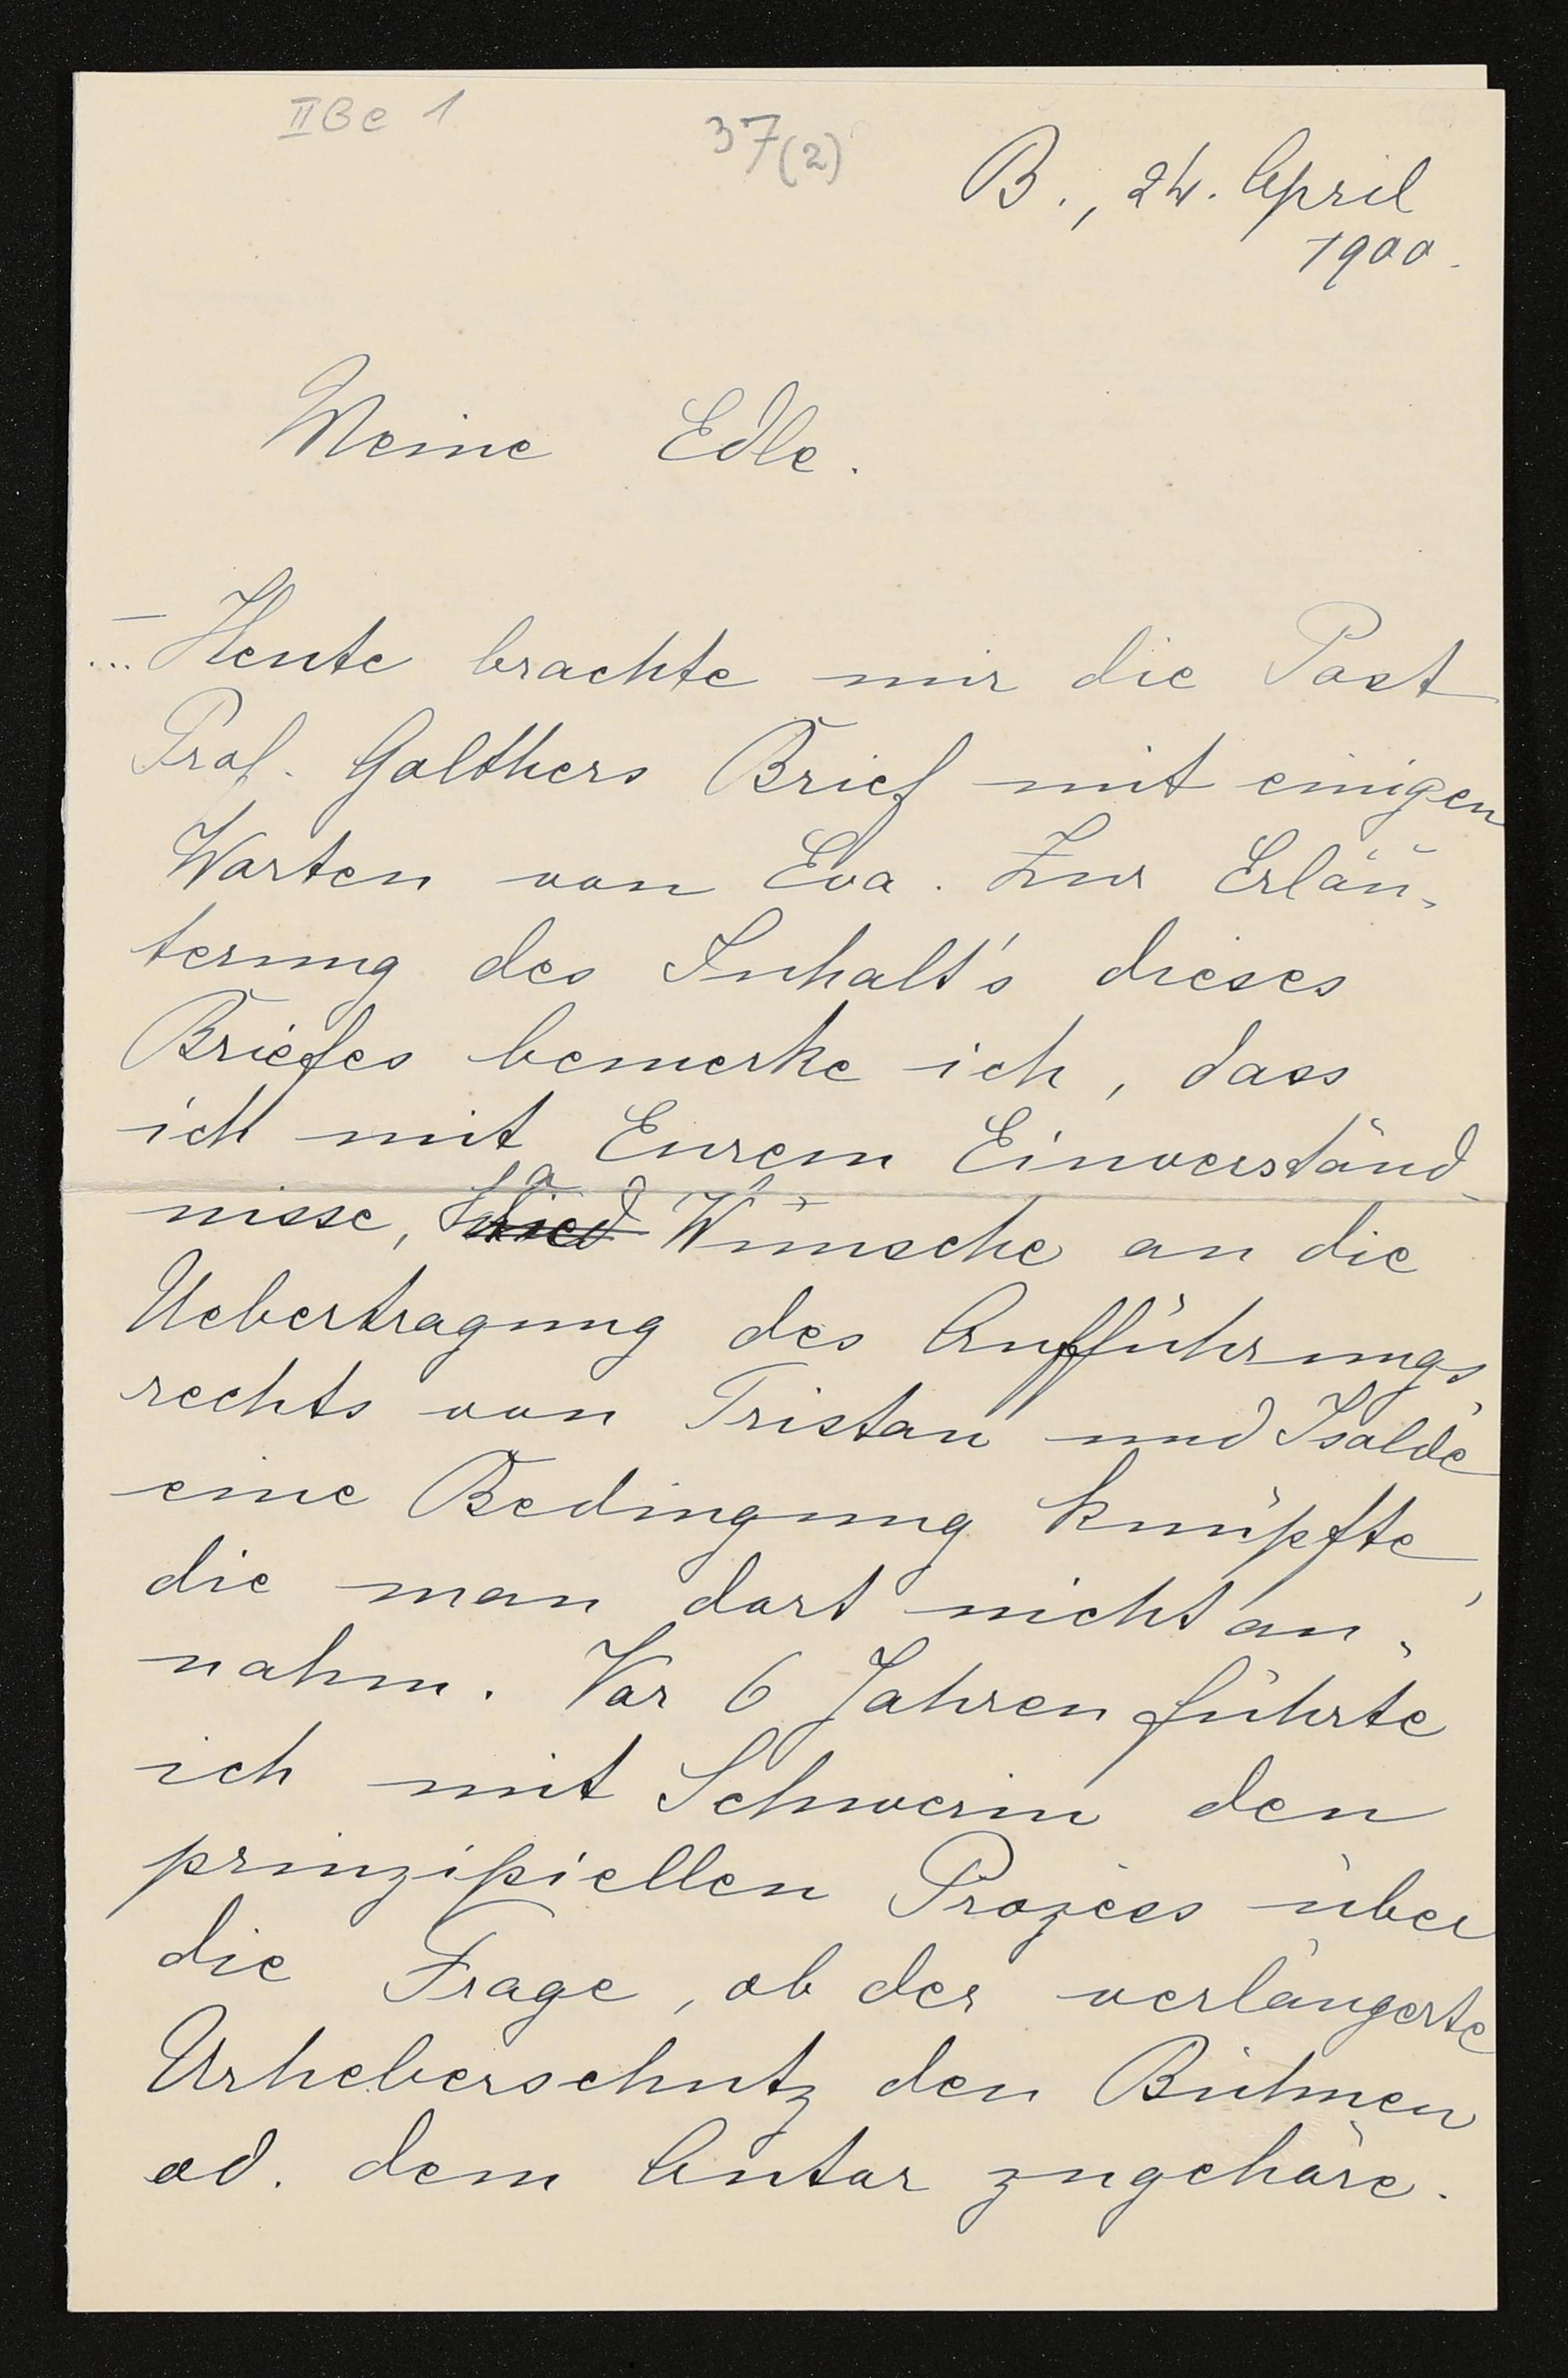 II Be 1
37(2)
B., 24. April
1900.
Meine Edle.
... Heute brachte mir die Post
Prof. Golthers Brief mit einigen
Worten von Eva. Zur Erläu-
terung des Inhalt's dieses
Briefes bemerke ich, dass
ich mit Eurem Einverständ-
nisse, Wünsche an die
Uebertragung des Aufführungs-
rechts von Tristan und Isolde
eine Bedingung knüpfte,
die man dort nicht an-
nahm. Vor 6 Jahren führte
ich mit Schwerin den
prinzipiellen Prozess über
die Frage, ob der verlängerte
Urheberschutz den Bühnen
od. dem Autor zugehöre.